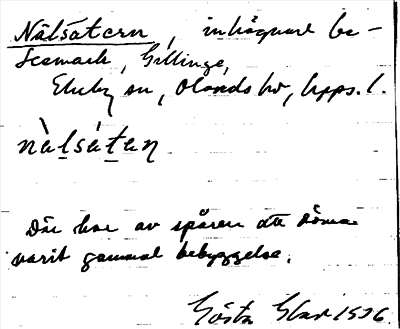 Nälsätern, inhägnad be-
tesmark, Gillinge,
Ekeby sn, Olands hd, Upps. l.
nä̀lsátaṇ
Där har av spåren att döma
varit gammal bebyggelse.
Gösta 1936.